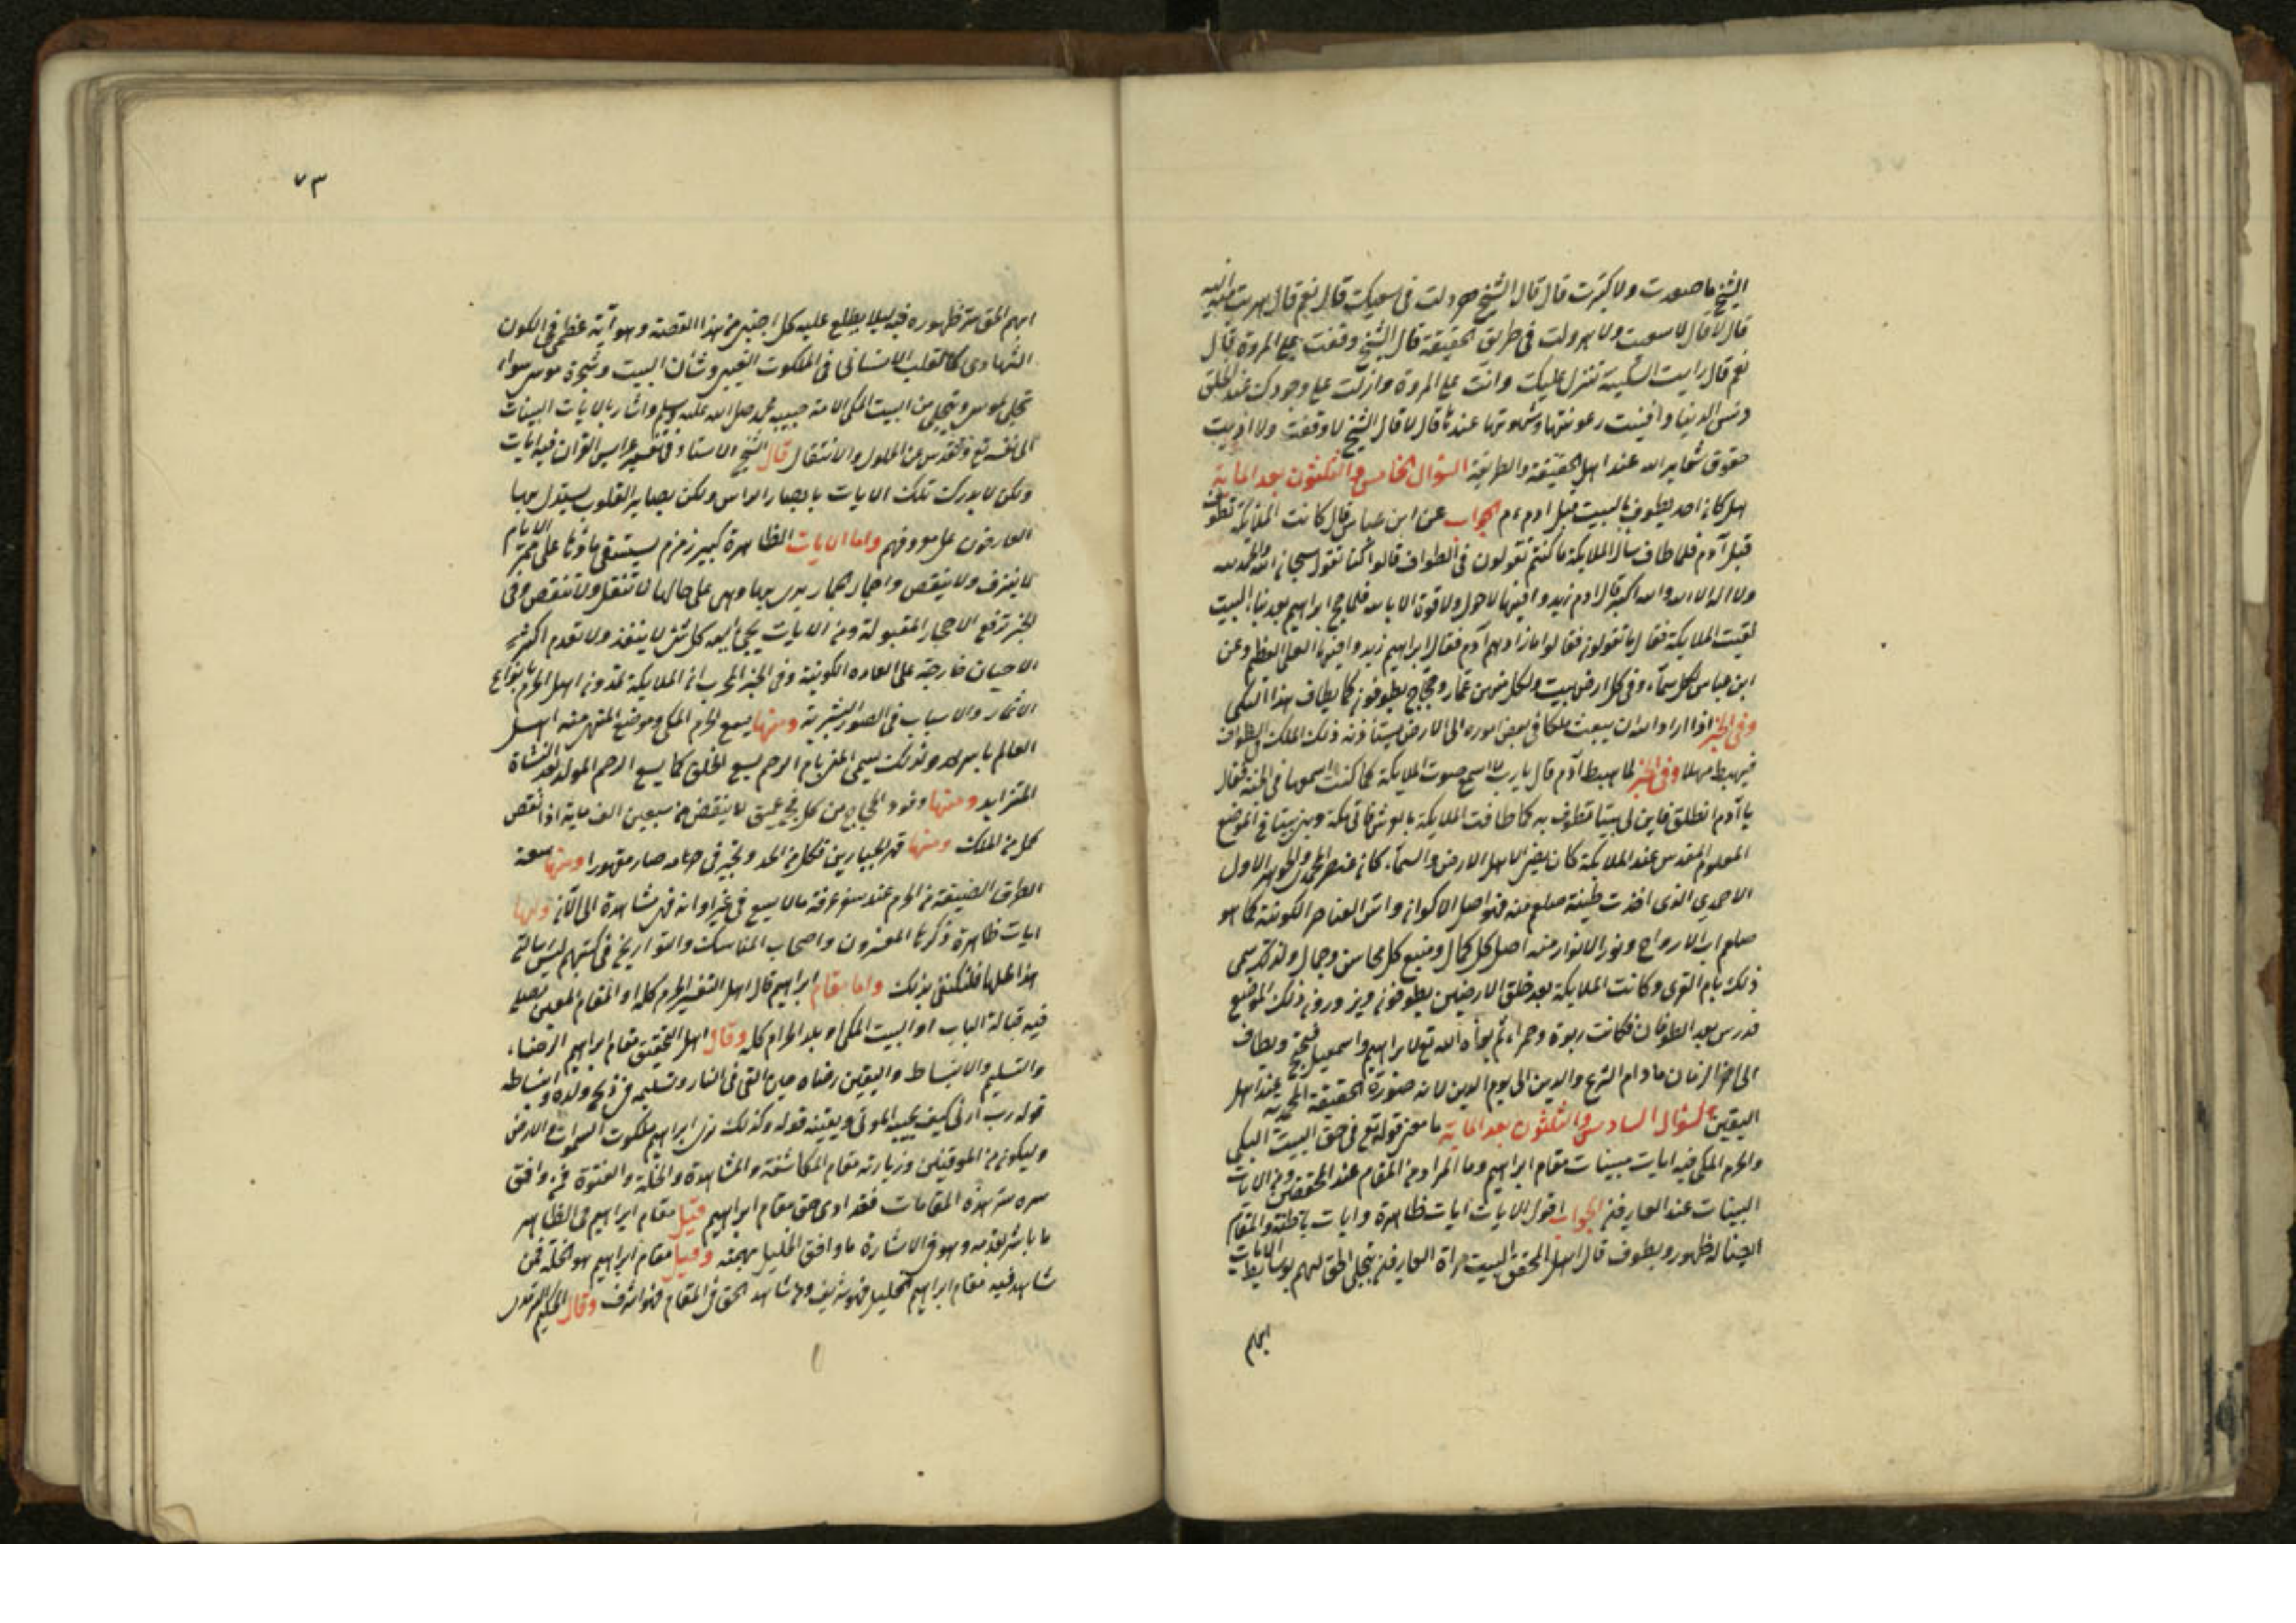 الشيخ ما صعدت ولا كبرت قال قال الشيخ هرولت في سعيك قال نعم قال هربت منه اليه
قال لا قال لا سعيت ولا هرولت في طريق الحقيقة قال الشيخ وقفت على المروة قال
نعم قال رايت السكينة تنزل عليك وانت على المروة وازلت على وجودك عند الخلق
ونس الدنيا وافنيت رعونتها وشهوتها عندها قال لا قال الشيخ لا وقفت ولا اديت
حقوق شعاير الله عند اهل الحقيقة والطريقة السؤال الخامس والثلثون بعد الماية
هل كان احد يطوف بالبيت قبل ادم ءم الجواب عن ابن عباس قال كانت الملايكة تطوف
قبل آدم فلما طاف سأل الملايكة ما كنتم تقولون في الطواف قالوا كنا نقول سبحان الله والحمد لله
ولا اله الا الله والله اكبر قال ادم زيدوا فيها لا حول ولا قوة الا بالله فلما حج ابراهيم بعد بناء البيت
لقيت الملايكة فقال ما تقولون فقالوا ما زادهم آدم فقال ابراهيم زيدوا فيها العلي العظيم وعن
ابن عباس لكل سماء وفي كل ارض بيت ولكل منهن عمار وحجاج يطوفون كما يطاف هذا المكي
وفي الخبر اذا اراد الله ان يبعث ملكا في بعض اموره الى الارض يستأذنه ذلك الملك في الطواف
فيهبط مهللا وفي الخبر لما هبط آدم قال يا رب لا اسمع صوت الملايكة كما كنت اسمعها في الجنة فقال
يا آدم انطلق فابن لي بيتا تطوف به كما طافت الملايكة بالعرش فاتى مكة وبنى بيتا في الموضع
المعلوم المقدس عند الملايكة كان يضئ لاهل الارض والسماء كان عنصر المحمدي والجوهر الاول
الاحمدي الذي اخذت طينة صلعم منه فهو اصل الاكوان واس العناصر الكونية كما هو
صلعم اب الارواح ونور الانوار منه اصل كل كمال ومنبع كل محاسن وجمال ولذلك سمى
ذلك بام القرى وكانت الملايكة بعد خلق الارضين يطوفون ويزورون ذلك الموضع
فدرس بعد الطوفان فكانت ربوة وحمراء ثم بوأه الله تع لابراهيم واسمعيل فيحج ويطاف
الى اخر الزمان ما دام الشرع والدين الى يوم الدين لانه صورة الحقيقة المحمدية عند اهل
اليقين السؤال السادس والثلثون بعد الماية ما معنى قوله تع في حق البيت المكي
والحرم المكي فيه ايات بينات مقام ابراهيم وما المراد من المقام عند المحققين ومن الايات
البينات عند العارفين الجواب اقول الايات ايات ظاهرة وايات باطنة والمقام
ايضا له ظهور وبطون قال اهل التحقيق البيت مرآة العارفين يتجلى الحق لهم بوسايط الايات
ايهم الحق ستر ظهوره فيه ليلا يطلع عليه كل اجنبي من هذا القصة وهو آية عظمى في الكون
الشهادي كالقلب الانساني في الملكوت الغيبي وشان البيت وشجرة موسى سواء
تجلى لموسى وتجلى من البيت المكي لامة حبيبه محمد صلى الله عليه وسلم واشار بالايات البينات
الى نفسه تع وتقدس عن الحلول والانتقال قال الشيخ الاستاذ في تفسير عرايس القران فيه ايات
ولكن لا يدرك تلك الايات بابصار الراس ولكن بصاير القلوب يستدل بها
العارفون على معروفهم واما الايات الظاهرة كبير زمزم يستسقى ماؤها على ممر الايام
لا ينزف ولا ينقص واحجار الجمار يرمى بها وهي على حالها لا تنتقل ولا تنقص وفي
الخبر ترفع الاحجار المقبولة ومن الايات يجئ اليه كل شئ لا ينفذ ولا تعدم اكثر في
الاحيان خارجة على العادة الكونية وفي الخبر المجرب ان الملايكة تمدون اهل الحرم بانواع
الاثمار والاسباب في الصور البشرية ومنها يسع الحرم المكي وموضع المنى منه اهل
العالم باسرهم ولذلك سمى المنى بام الرحم يسع الخلق كما يسع الرحم المولد بعد النشاة
المتزايد ومنها وفود الحجاج من كل فج عميق لا ينقص من سبعين الف ماية اذا نقص
كمل من الملك ومنها قهر الجبارين فكل من الحد وتجبر في حرمه صار مقهورا ومنها سعة
الطرق الضيقة من الحرم عند سفر عرفة ما لا يسع في غير اوانه فهي مشاهدة الى الآن ومنها
ايات ظاهرة ذكرها المفسرون واصحاب المناسك والتواريخ في كتبهم ليس رسالتي
هذا محلها فلنكتفي بذلك واما مقام ابراهيم قال اهل التفسير الحرم كله او المقام المعين يصلى
فيه قبالة الباب او البيت المكي او بلد الحرام كله وقال اهل التحقيق مقام ابراهيم الرضاء
والتسليم والانبساط واليقين رضاه حين القي في النار وتسليمه في ذبح ولده وانبساطه
قوله رب ارني كيف تحيي الموتى ويقينه قوله وكذلك نري ابراهيم ملكوت السموات والارض
وليكون من الموقنين وزيارته مقام المكاشفة والمشاهدة والخلة والفتوة فمن وافق
سره ستر هذه المقامات فقد ادى حق مقام ابراهيم قيل مقام ابراهيم في الظاهر
ما باشر بقدمه وهو في الاشارة ما وافق الخليل بهمته وقيل مقام ابراهيم هو الخلة فمن
شاهد فيه مقام ابراهيم الخليل فهو شريف ومن شاهد الحق في المقام فهو اشرف وقال الحكيم الترمذي
٧٣